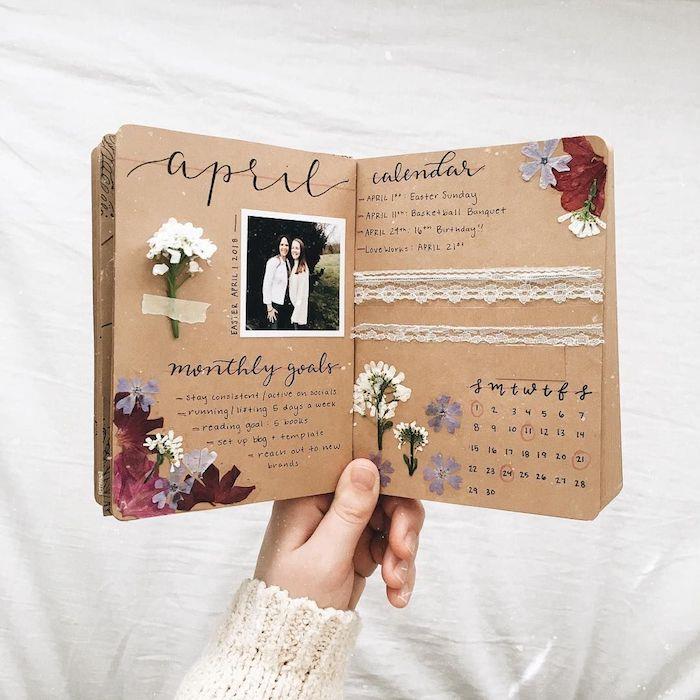 april
EASTER APRIL 1 2018
monthly goals
- stay consistent/active on socials
- running/lifting 5 days a week
- reading goal: 5 books
- set up blog + template
- reach out to new
brands
calendar
- APRIL 1ST: Easter Sunday
- APRIL 11TH: Basketball Banquet
- APRIL 24TH: 16TH Birthday!!
- LoveWorks: APRIL 21ST
s m t w t f s
1 2 3 4 5 6 7
8 9 10 11 12 13 14
15 16 17 18 19 20 21
22 23 24 25 26 27 28
29 30